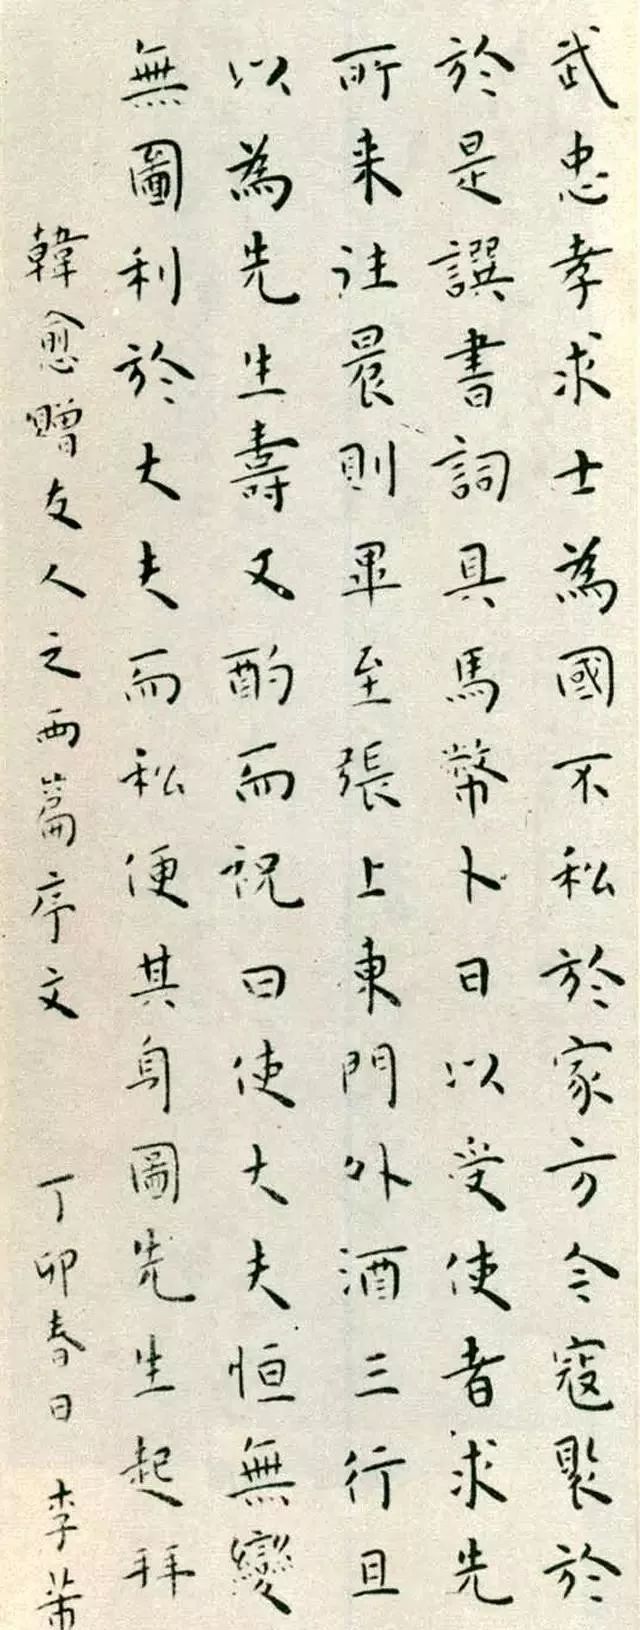 武忠孝求士為國不私於家方今寇聚於
於是譔書詞具馬幣卜日以受使者求先
所来往晨則畢至張上東門外酒三行且
以為先生壽又酌而祝曰使大夫恒無變
無圖利於大夫而私便其身圖先生起拜
韓愈贈友人之两篇序文 丁卯春日 李